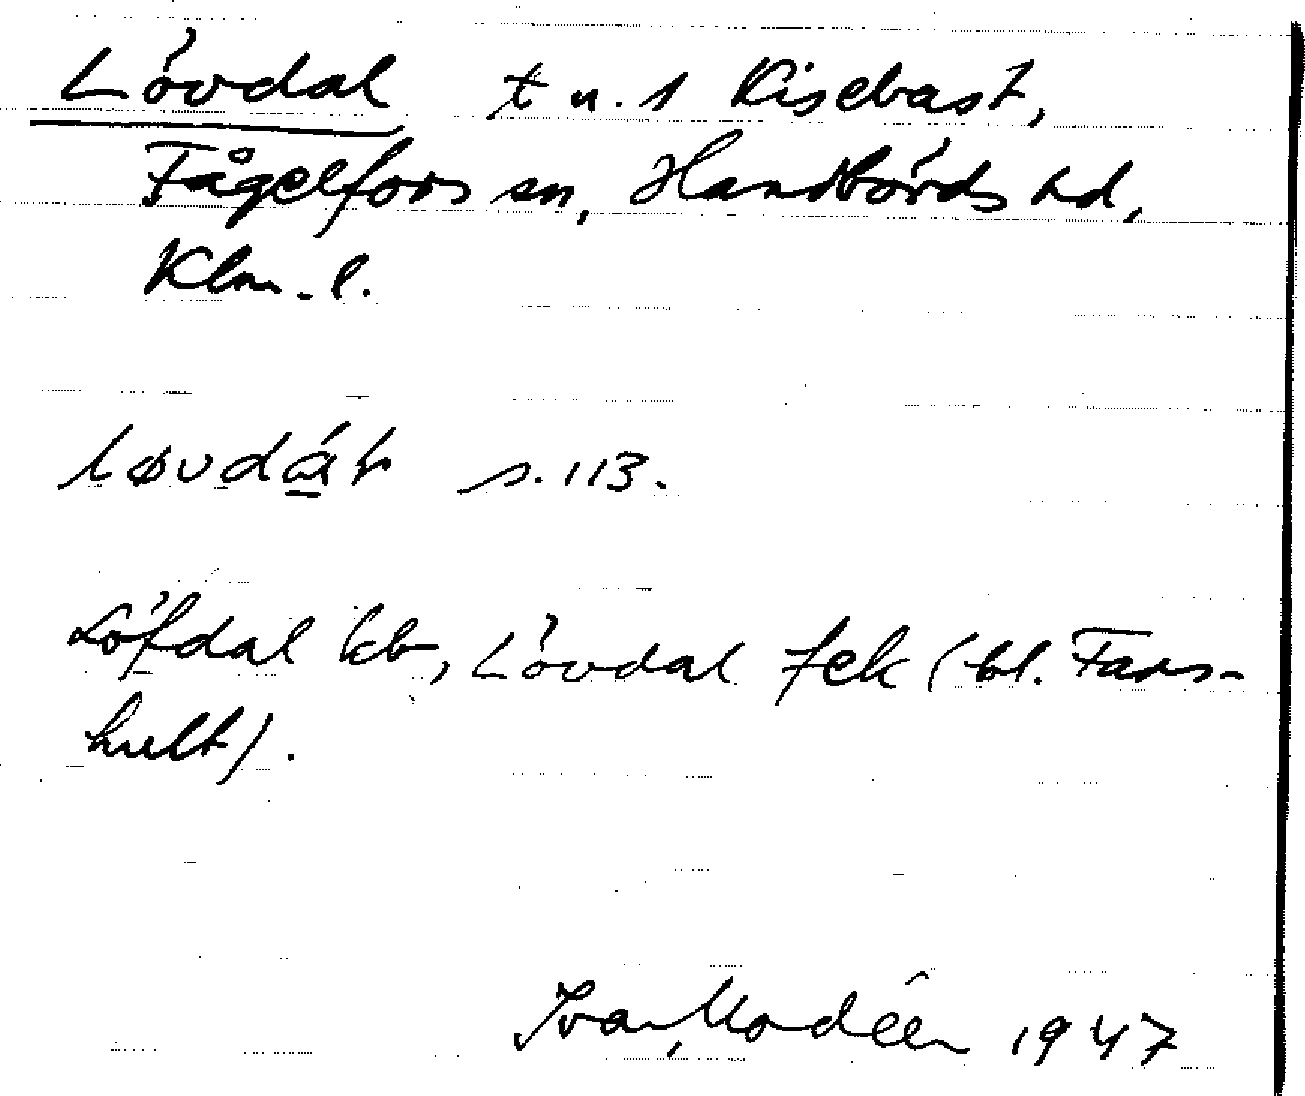 Lövdal t u. 1 Kisebast,
Fågelfors sn, Handbörds hd,
Klm. l.
s. 113.
Löfdal kb, Lövdal Jek (bl. Fars-
hult).
Ivar Modéer 1947